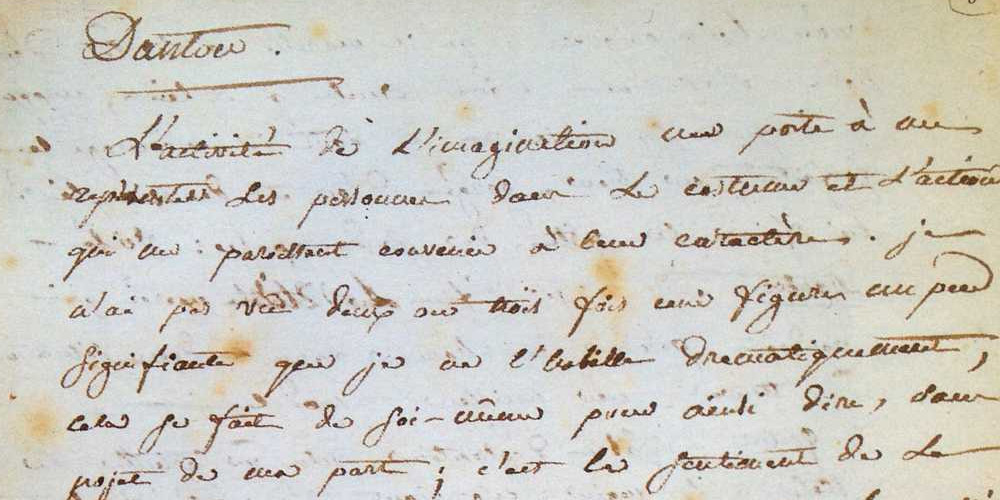 Danton.
L'activité de l'imagination me porte à me
représenter les personnes dans le costume et l'action
qui me paroissent convenir à leur caractère. je
n'ai pas vu deux ou trois fois une figure un peu
signifiante que je ne l'habille dramatiquement,
cela se fait de soi-même pour ainsi dire, sans
projet de ma part ; c'est le sentiment de la